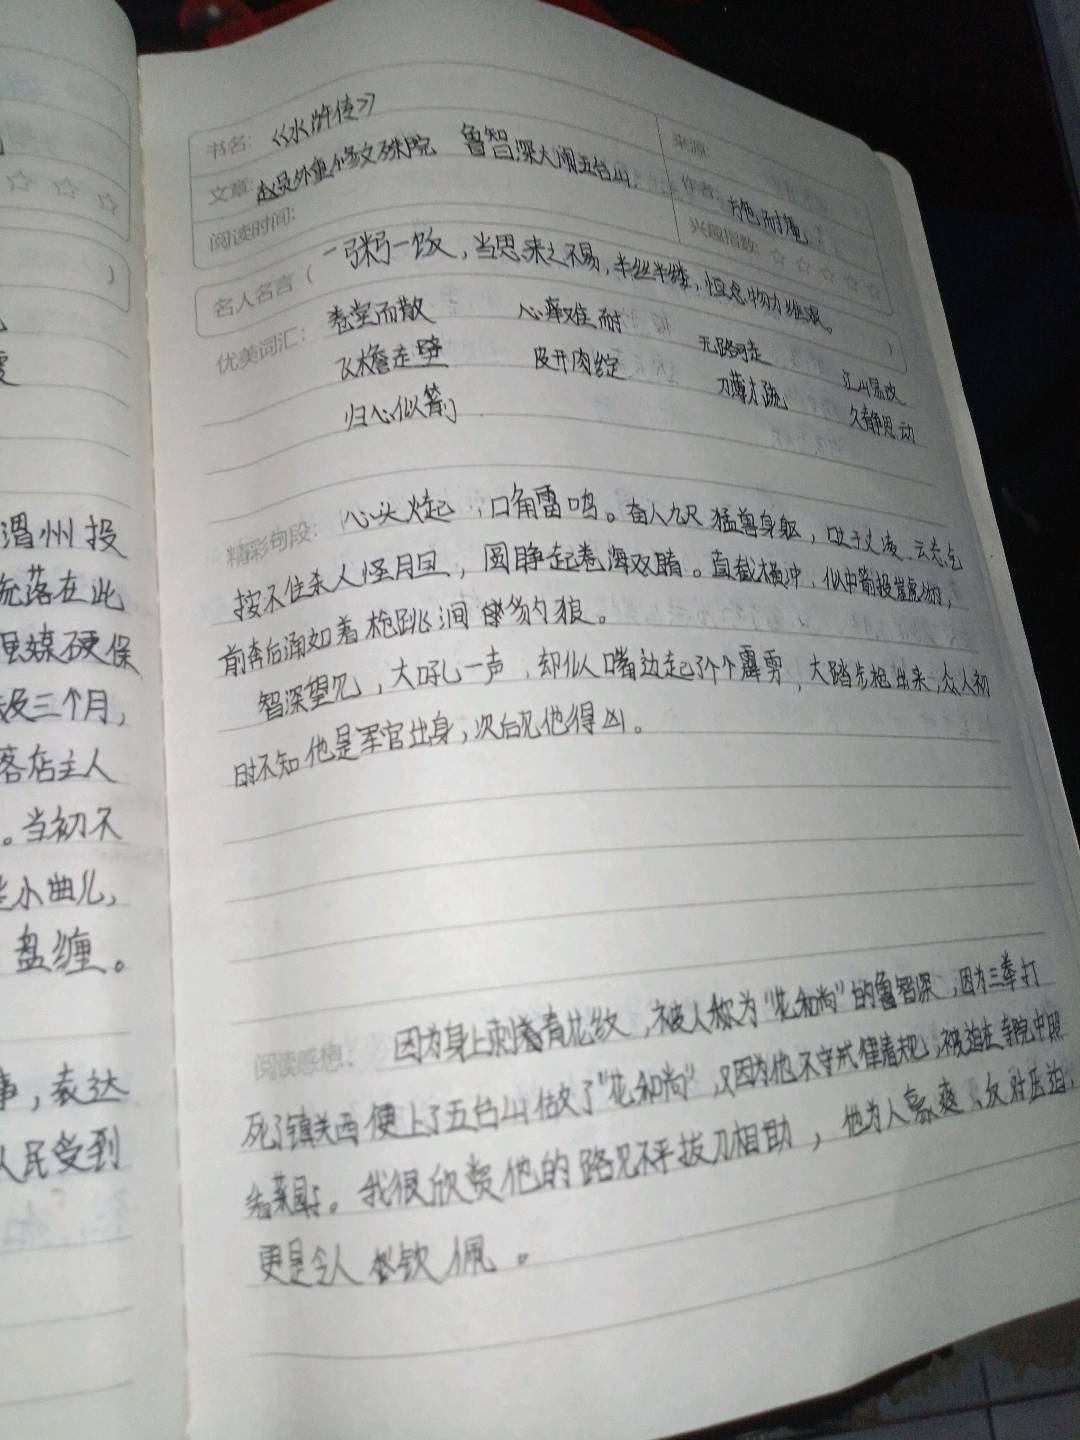 渭州投
流落在此
强媒硬保
没三个月,
客店主人
。当初不
些小曲儿,
盘缠。
事,表达
人民受到
书名: 《水浒传》 来源:
文章: 赵员外重修文殊院 鲁智深大闹五台山 作者: 施耐庵
阅读时间: 兴趣指数: ☆ ☆ ☆ ☆ ☆
名人名言( 一粥一饭,当思来之不易,半丝半缕,恒念物力维艰。 )
优美词汇: 卷堂而散 心痒难耐 无路可走 江山易改
飞檐走壁 皮开肉绽 刀薄 久静思动
归心似箭
精彩句段: 心头火起,口角雷鸣。奋八九尺猛兽身躯,吐三丈凌云志气
按不住杀人怪胆,圆睁起卷海双睛。直截横冲,似中箭投崖虎豹,
前奔后涌如着枪跳涧豺狼。
智深望见,大吼一声,却似嘴边起个霹雳,大踏步抢出来,众人初
时不知他是军官出身,次后见他得凶。
阅读感想: 因为身上刺着青花纹,被人称为"花和尚"的鲁智深,因为三拳打
死了镇关西便上了五台山做了"花和尚",又因为他不守戒律清规,被迫在寺院中照
看菜园。我很欣赏他的路见不平拔刀相助,他为人豪爽,反对压迫,
更是令人钦佩。